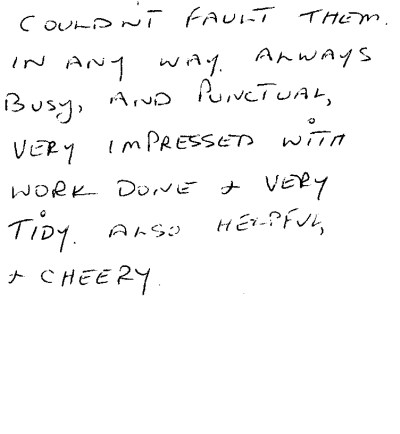 COULDNT FAULT THEM.
IN ANY WAY. ALWAYS
BUSY, AND PUNCTUAL,
VERY IMPRESSED WITH
WORK DONE + VERY
TIDY. ALSO HELPFUL,
+ CHEERY.